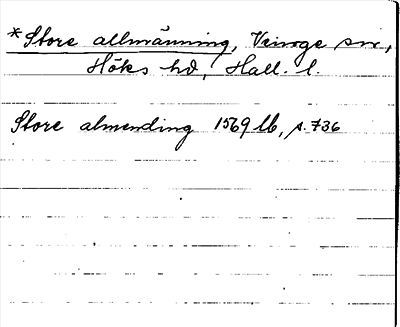 *Store allmänning, Veinge sn,
Höks hd, Hall. l.
Store almending 1569 lb, s. 736